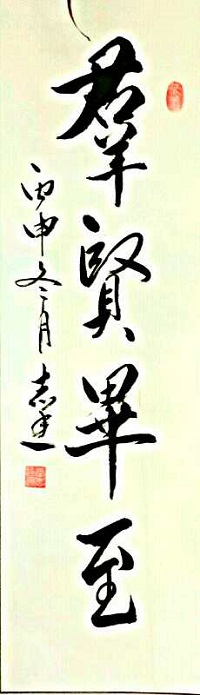 羣賢畢至
丙申冬月 志達